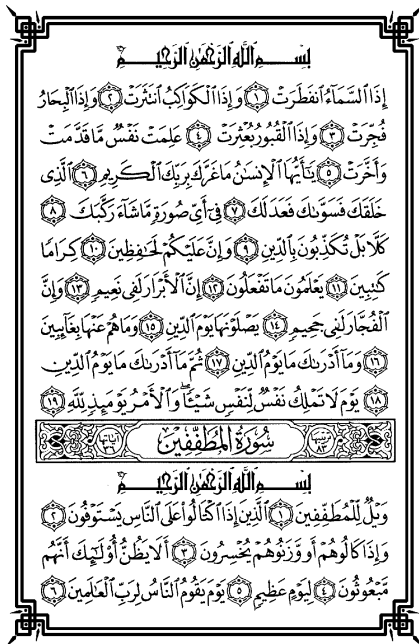 بِسْمِ اللَّهِ الرَّحْمَٰنِ الرَّحِيمِ
إِذَا السَّمَاءُ انفَطَرَتْ ١ وَإِذَا الْكَوَاكِبُ انتَثَرَتْ ٢ وَإِذَا الْبِحَارُ
فُجِّرَتْ ٣ وَإِذَا الْقُبُورُ بُعْثِرَتْ ٤ عَلِمَتْ نَفْسٌ مَّا قَدَّمَتْ
وَأَخَّرَتْ ٥ يَٰٓأَيُّهَا الْإِنسَٰنُ مَا غَرَّكَ بِرَبِّكَ الْكَرِيمِ ٦ الَّذِى
خَلَقَكَ فَسَوَّىٰكَ فَعَدَلَكَ ٧ فِىٓ أَىِّ صُورَةٍ مَّا شَآءَ رَكَّبَكَ ٨
كَلَّا بَلْ تُكَذِّبُونَ بِالدِّينِ ٩ وَإِنَّ عَلَيْكُمْ لَحَٰفِظِينَ ١٠ كِرَامًا
كَٰتِبِينَ ١١ يَعْلَمُونَ مَا تَفْعَلُونَ ١٢ إِنَّ الْأَبْرَارَ لَفِى نَعِيمٍ ١٣ وَإِنَّ
الْفُجَّارَ لَفِى جَحِيمٍ ١٤ يَصْلَوْنَهَا يَوْمَ الدِّينِ ١٥ وَمَا هُمْ عَنْهَا بِغَآئِبِينَ
١٦ وَمَآ أَدْرَىٰكَ مَا يَوْمُ الدِّينِ ١٧ ثُمَّ مَآ أَدْرَىٰكَ مَا يَوْمُ الدِّينِ
١٨ يَوْمَ لَا تَمْلِكُ نَفْسٌ لِّنَفْسٍ شَيْـًٔا ۖ وَالْأَمْرُ يَوْمَئِذٍ لِّلَّهِ ١٩
ترتيبها ٨٣ سُورَةُ الْمُطَفِّفِينَ آياتها ٣٦
بِسْمِ اللَّهِ الرَّحْمَٰنِ الرَّحِيمِ
وَيْلٌ لِّلْمُطَفِّفِينَ ١ الَّذِينَ إِذَا اكْتَالُوا۟ عَلَى النَّاسِ يَسْتَوْفُونَ ٢
وَإِذَا كَالُوهُمْ أَو وَّزَنُوهُمْ يُخْسِرُونَ ٣ أَلَا يَظُنُّ أُو۟لَٰٓئِكَ أَنَّهُم
مَّبْعُوثُونَ ٤ لِيَوْمٍ عَظِيمٍ ٥ يَوْمَ يَقُومُ النَّاسُ لِرَبِّ الْعَٰلَمِينَ ٦